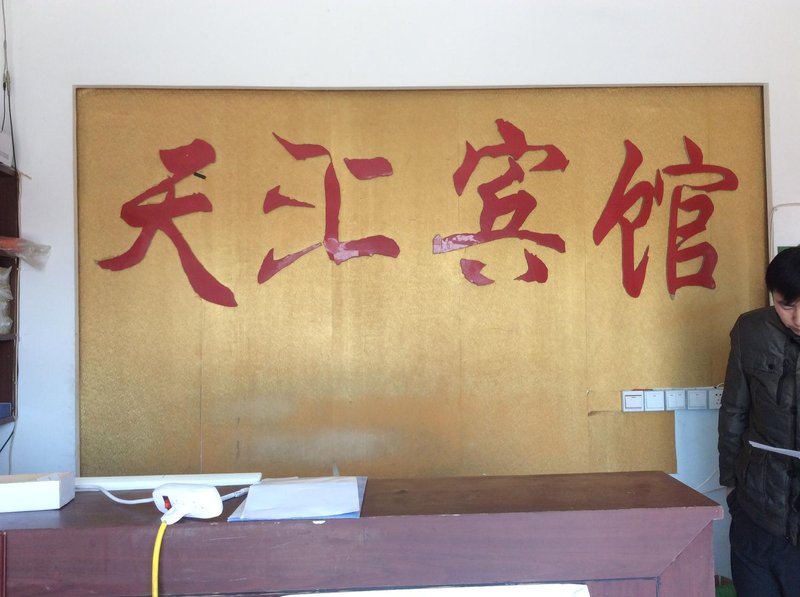 天汇宾馆